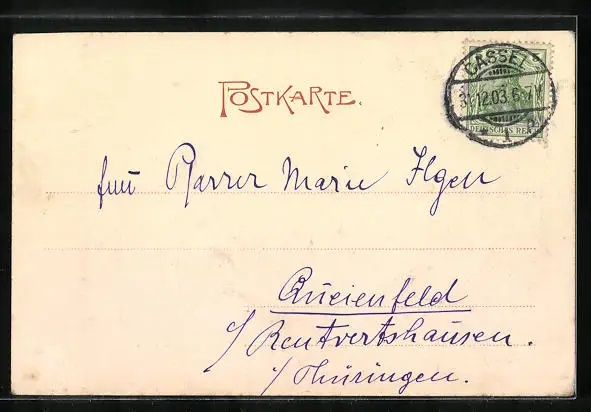 CASSEL
31.12.03.6-7N
1
DEUTSCHES REICH
POSTKARTE.
Frau Pfarrer Marie Ilgen
Queienfeld
b/ Rentwertshausen.
i/ Thüringen.